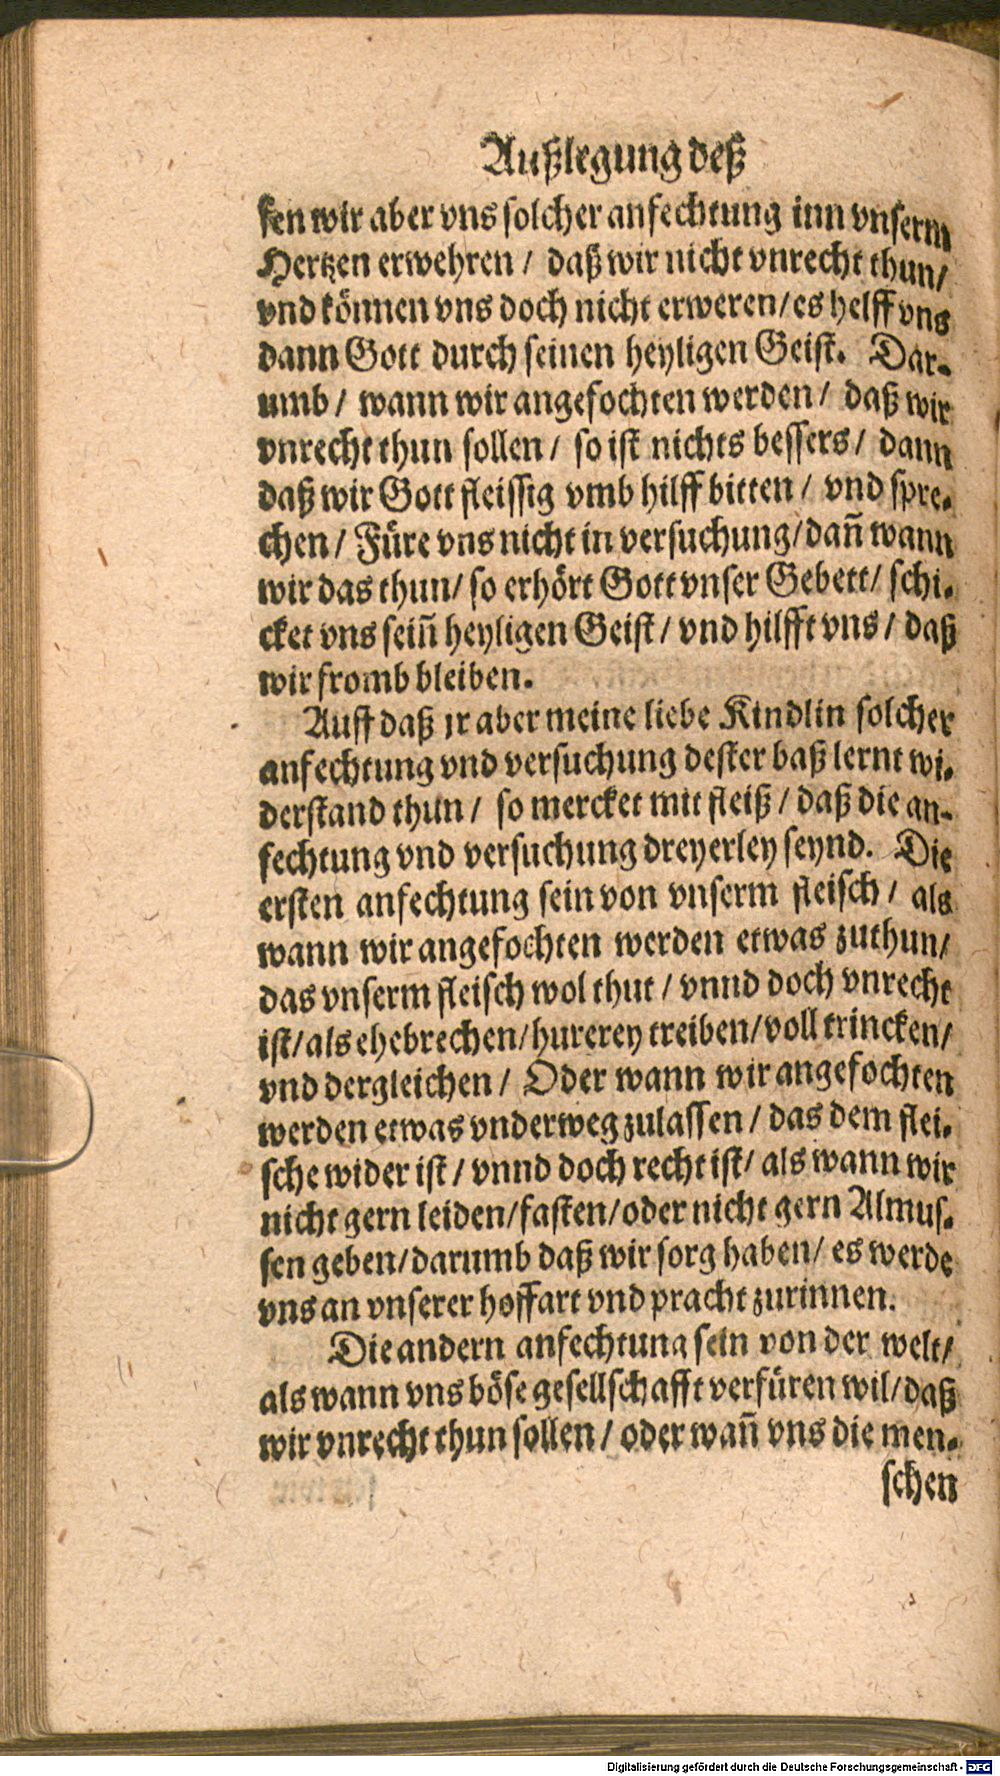 Außlegung deß
sen wir aber vns solcher anfechtung inn vnserm
Hertzen erwehren / daß wir nicht vnrecht thun/
vnd können vns doch nicht erweren/es helff vns
dann Gott durch seinen heyligen Geist. Dar-
umb / wann wir angefochten werden / daß wir
vnrecht thun sollen / so ist nichts bessers / dann
daß wir Gott fleissig vmb hilff bitten / vnd spre-
chen / Füre vns nicht in versuchung/dañ wann
wir das thun/ so erhört Gott vnser Gebett/ schi-
cket vns seiñ heyligen Geist / vnd hilfft vns / daß
wir fromb bleiben.
Auff daß jr aber meine liebe Kindlin solcher
anfechtung vnd versuchung dester baß lernt wi-
derstand thun / so mercket mit fleiß / daß die an-
fechtung vnd versuchung dreyerley seynd. Die
ersten anfechtung sein von vnserm fleisch / als
wann wir angefochten werden etwas zuthun/
das vnserm fleisch wol thut / vnnd doch vnrecht
ist/als ehebrechen/hurerey treiben/voll trincken/
vnd dergleichen / Oder wann wir angefochten
werden etwas vnderweg zulassen / das dem flei-
sche wider ist / vnnd doch recht ist/ als wann wir
nicht gern leiden/fasten/oder nicht gern Almus-
sen geben/darumb daß wir sorg haben/ es werde
vns an vnserer hoffart vnd pracht zurinnen.
Die andern anfechtung sein von der welt/
als wann vns böse gesellschafft verfüren wil/daß
wir vnrecht thun sollen / oder wañ vns die men-
schen
Digitalisierung gefördert durch die Deutsche Forschungsgemeinschaft - DFG